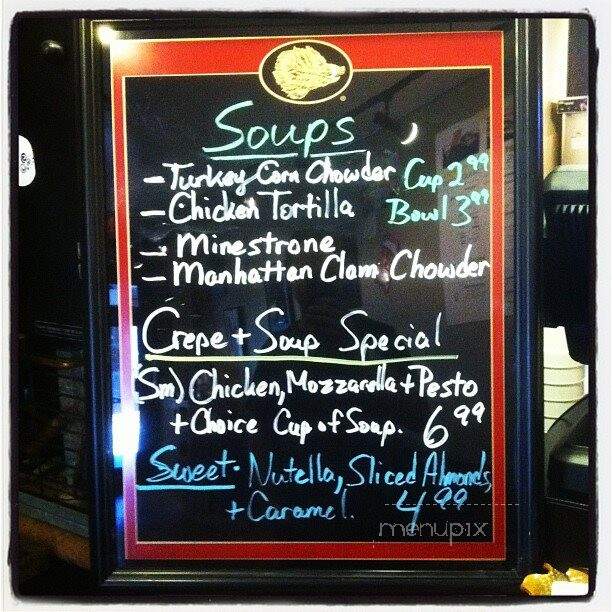 Soups
- Turkey Corn Chowder Cup 2.99
- Chicken Tortilla Bowl 3.99
- Minestrone
- Manhattan Clam Chowder
Crepe + Soup Special
(Sm) Chicken, Mozzarella + Pesto
+ Choice Cup of Soup. 6.99
Sweet. Nutella, Sliced Almonds,
+ Caramel. 4.99
menupix